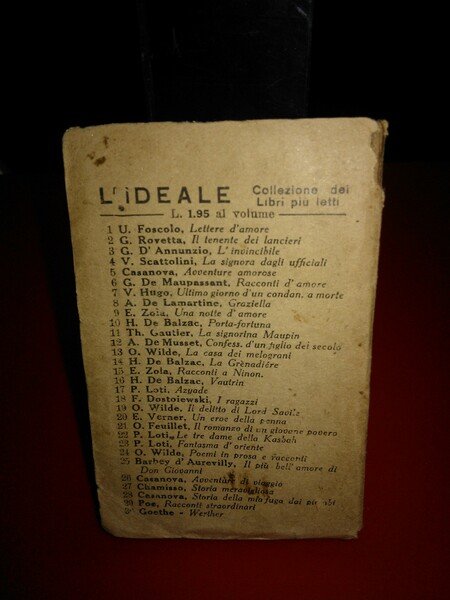 L'IDEALE Collezione dei
Libri più letti
L. 1.95 al volume
1 U. Foscolo, Lettere d'amore
2 G. Rovetta, Il tenente dei lancieri
3 G. D'Annunzio, L'invincibile
4 V. Scattolini, La signora dagli ufficiali
5 Casanova, Avventure amorose
6 G. De Maupassant, Racconti d'amore
7 V. Hugo, Ultimo giorno d'un condan. a morte
8 A. De Lamartine, Graziella
9 E. Zola, Una notte d'amore
10 H. De Balzac, Porta-fortuna
11 Th. Gautier, La signorina Maupin
12 A. De Musset, Confess. d'un figlio del secolo
13 O. Wilde, La casa dei melograni
14 H. De Balzac, La Grènadière
15 E. Zola, Racconti a Ninon.
16 H. De Balzac, Vautrin
17 P. Loti, Azyade
18 F. Dostoiewski, I ragazzi
19 O. Wilde, Il delitto di Lord Savile
20 E. Verner, Un eroe della penna
21 O. Feuillet, Il romanzo di un giovane povero
22 P. Loti, Le tre dame della Kasbah
23 P. Loti, Fantasma d'oriente
24 O. Wilde, Poemi in prosa e racconti
25 Barbey d'Aurevilly, Il più bell'amore di
Don Giovanni
26 Casanova, Avventure di viaggio
27 Chamisso, Storia meravigliosa
28 Casanova, Storia della mia fuga dai piombi
29 Poe, Racconti straordinari
Goethe - Werther